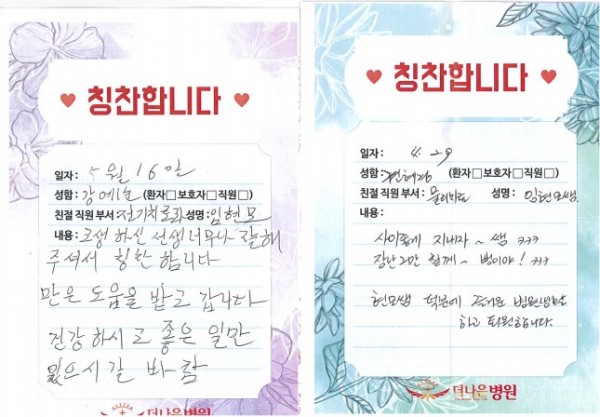 ♥ 칭찬합니다 ♥
일자 : 5월 16일
성함 : 강예순 (환자□보호자□직원□)
친절 직원 부서 : 전기치료화 성명 : 임현모
내용 : 고생 하신 선생 너무나 잘해
주셔서 칭찬 합니다
만은 도움을 받고 갑니다
건강 하시고 좋은 일만
있으시길 바람
더나은병원
♥ 칭찬합니다 ♥
일자 : 4. 29
성함 : (환자□보호자□직원□)
친절 직원 부서 : 성명 : 임현모쌤
내용 :
사이좋게 지내자~ 쌤 ㅋㅋㅋ
장난 그만 칠게~ 뻥이야! ㅋㅋㅋ
현모쌤 덕분에 병원생활
하고 퇴원합니다.
더나은병원